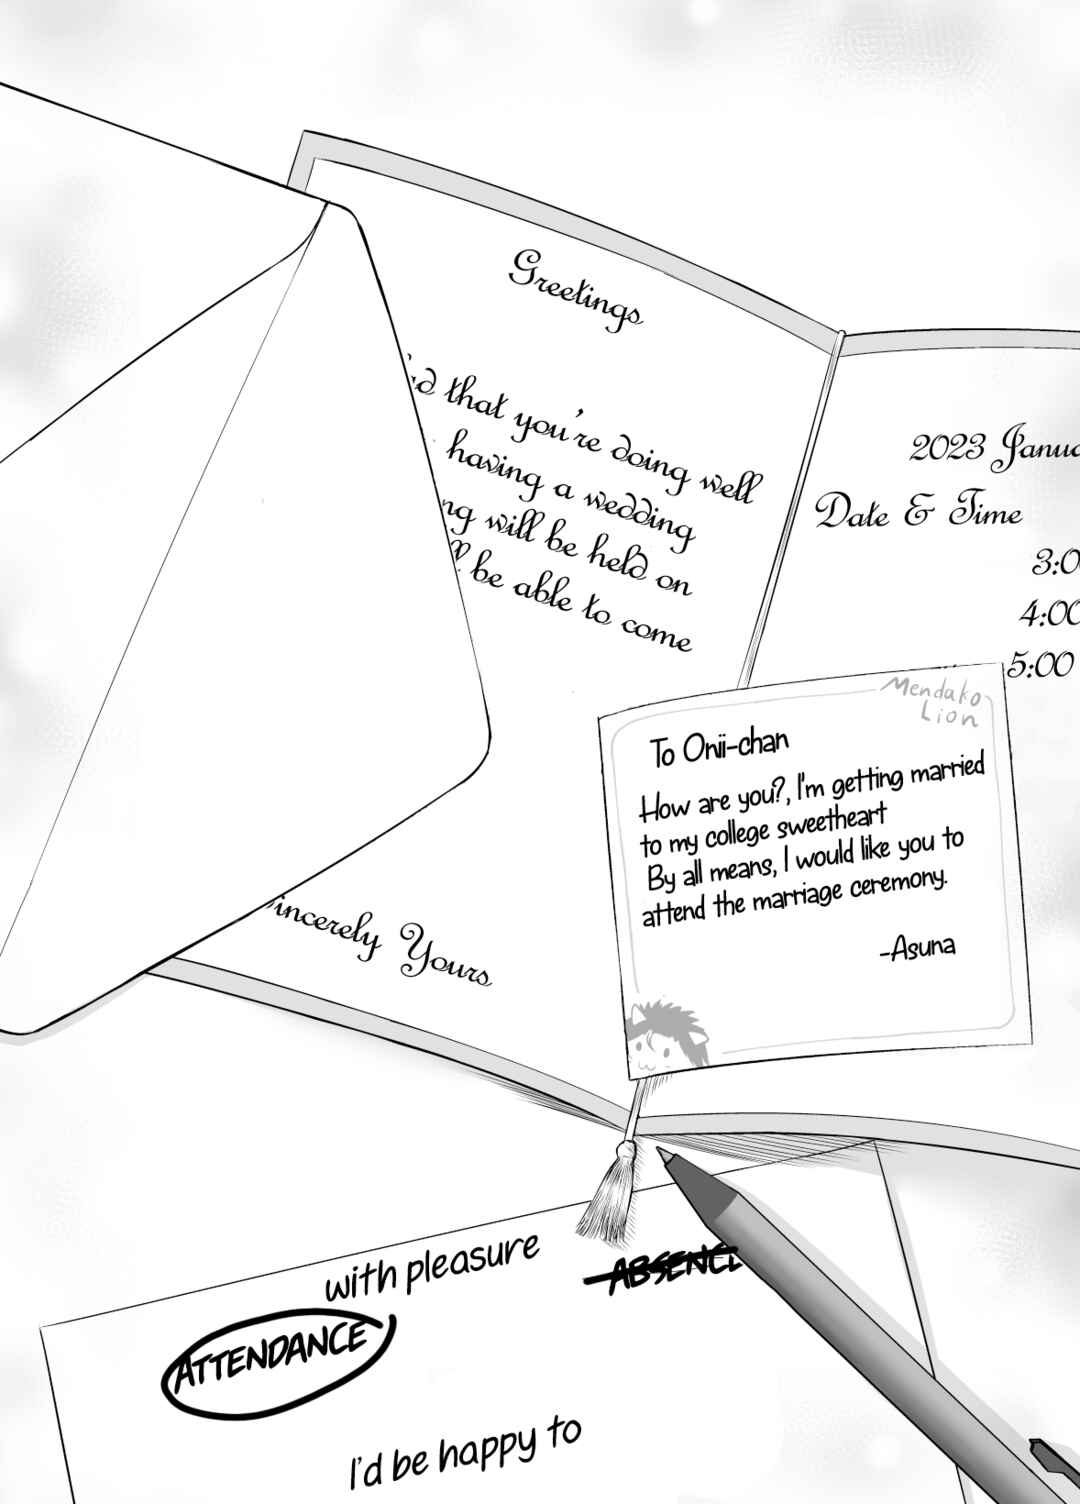 Greetings
that you're doing well
having a wedding
will be held on
be able to come
Sincerely Yours
2023
Date & Time
4:00
5:00
Mendako
Lion
To Onii-chan
How are you?, I'm getting married
to my college sweetheart
By all means, I would like you to
attend the marriage ceremony.
-Asuna
with pleasure
ATTENDANCE
ABSENCE
I'd be happy to